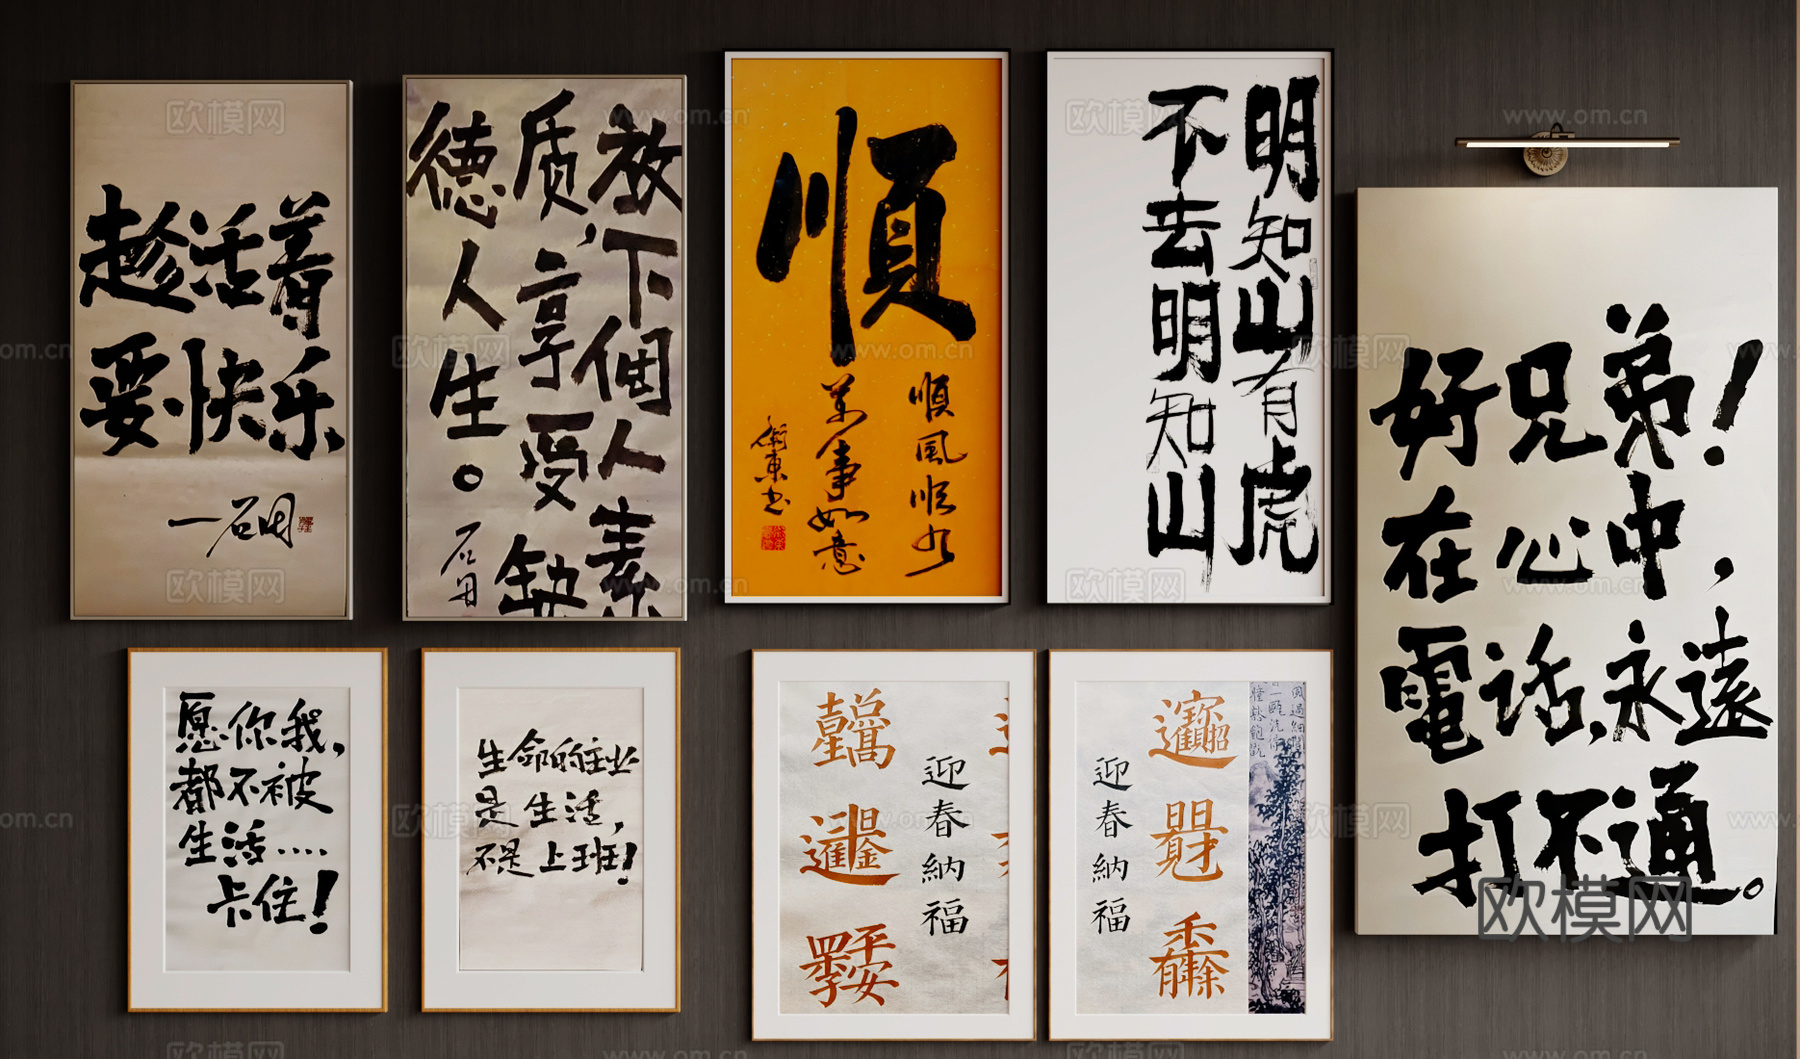 趁活着
要快乐
放下個人素
质,享受缺
德人生。
順
順風順水
萬事如意
明知山有虎
不去明知山
好兄弟!
在心中,
電话,永遠
打不通。
愿你我,
都不被
生活....
卡住!
生命的业
是生活,
不是上班!
迎春納福
迎春納福
欧模网
www.om.cn